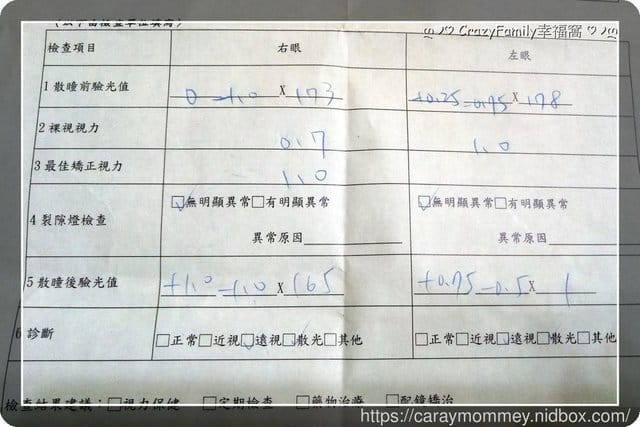 CrazyFamily幸福窩
(以下由檢查單位填寫)
檢查項目 右眼 左眼
1 散瞳前驗光值 0 -1.0 X 173 +0.25 -0.75 X 178
2 裸視視力 0.7 1.0
3 最佳矯正視力 1.0
4 裂隙燈檢查 ☑無明顯異常□有明顯異常 ☑無明顯異常□有明顯異常
異常原因 異常原因
5 散瞳後驗光值 +1.0 -1.0 X 165 +0.75 -0.5 X 1
6 診斷 □正常□近視☑遠視☑散光□其他 □正常□近視☑遠視□散光□其他
檢查結果建議：□視力保健 □定期檢查 □藥物治療 □配鏡矯治
https://caraymommey.nidbox.com/